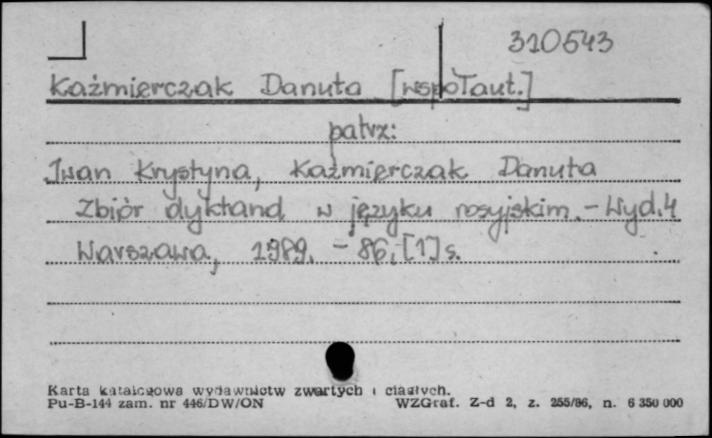 310543
Kaźmierczak Danuta [współaut.]
patrz:
Iwan Krystyna, Kaźmierczak Danuta
Zbiór dyktand w języku rosyjskim. - Wyd. 4
Warszawa, 1989. - 86, [1] s.
Karta katalogowa wydawnictw zwartych i ciągłych.
Pu-B-144 zam. nr 446/DW/ON WZGraf. Z-d 2, z. 255/86, n. 6 350 000